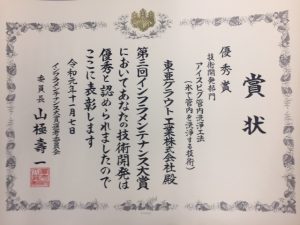 賞状
優秀賞
技術開発部門
アイスピグ管内洗浄工法
(氷で管内を洗浄する技術)
東亜グラウト工業株式会社殿
第三回インフラメンテナンス大賞
においてあなたの技術開発は
優秀と認められましたので
ここに表彰します
令和元年十一月七日
インフラメンテナンス大賞選考委員会
委員長 山極壽一